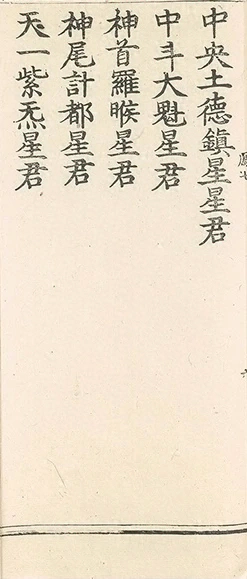 中央土德鎮星星君
中斗大魁星君
神首羅睺星君
神尾計都星君
天一紫炁星君